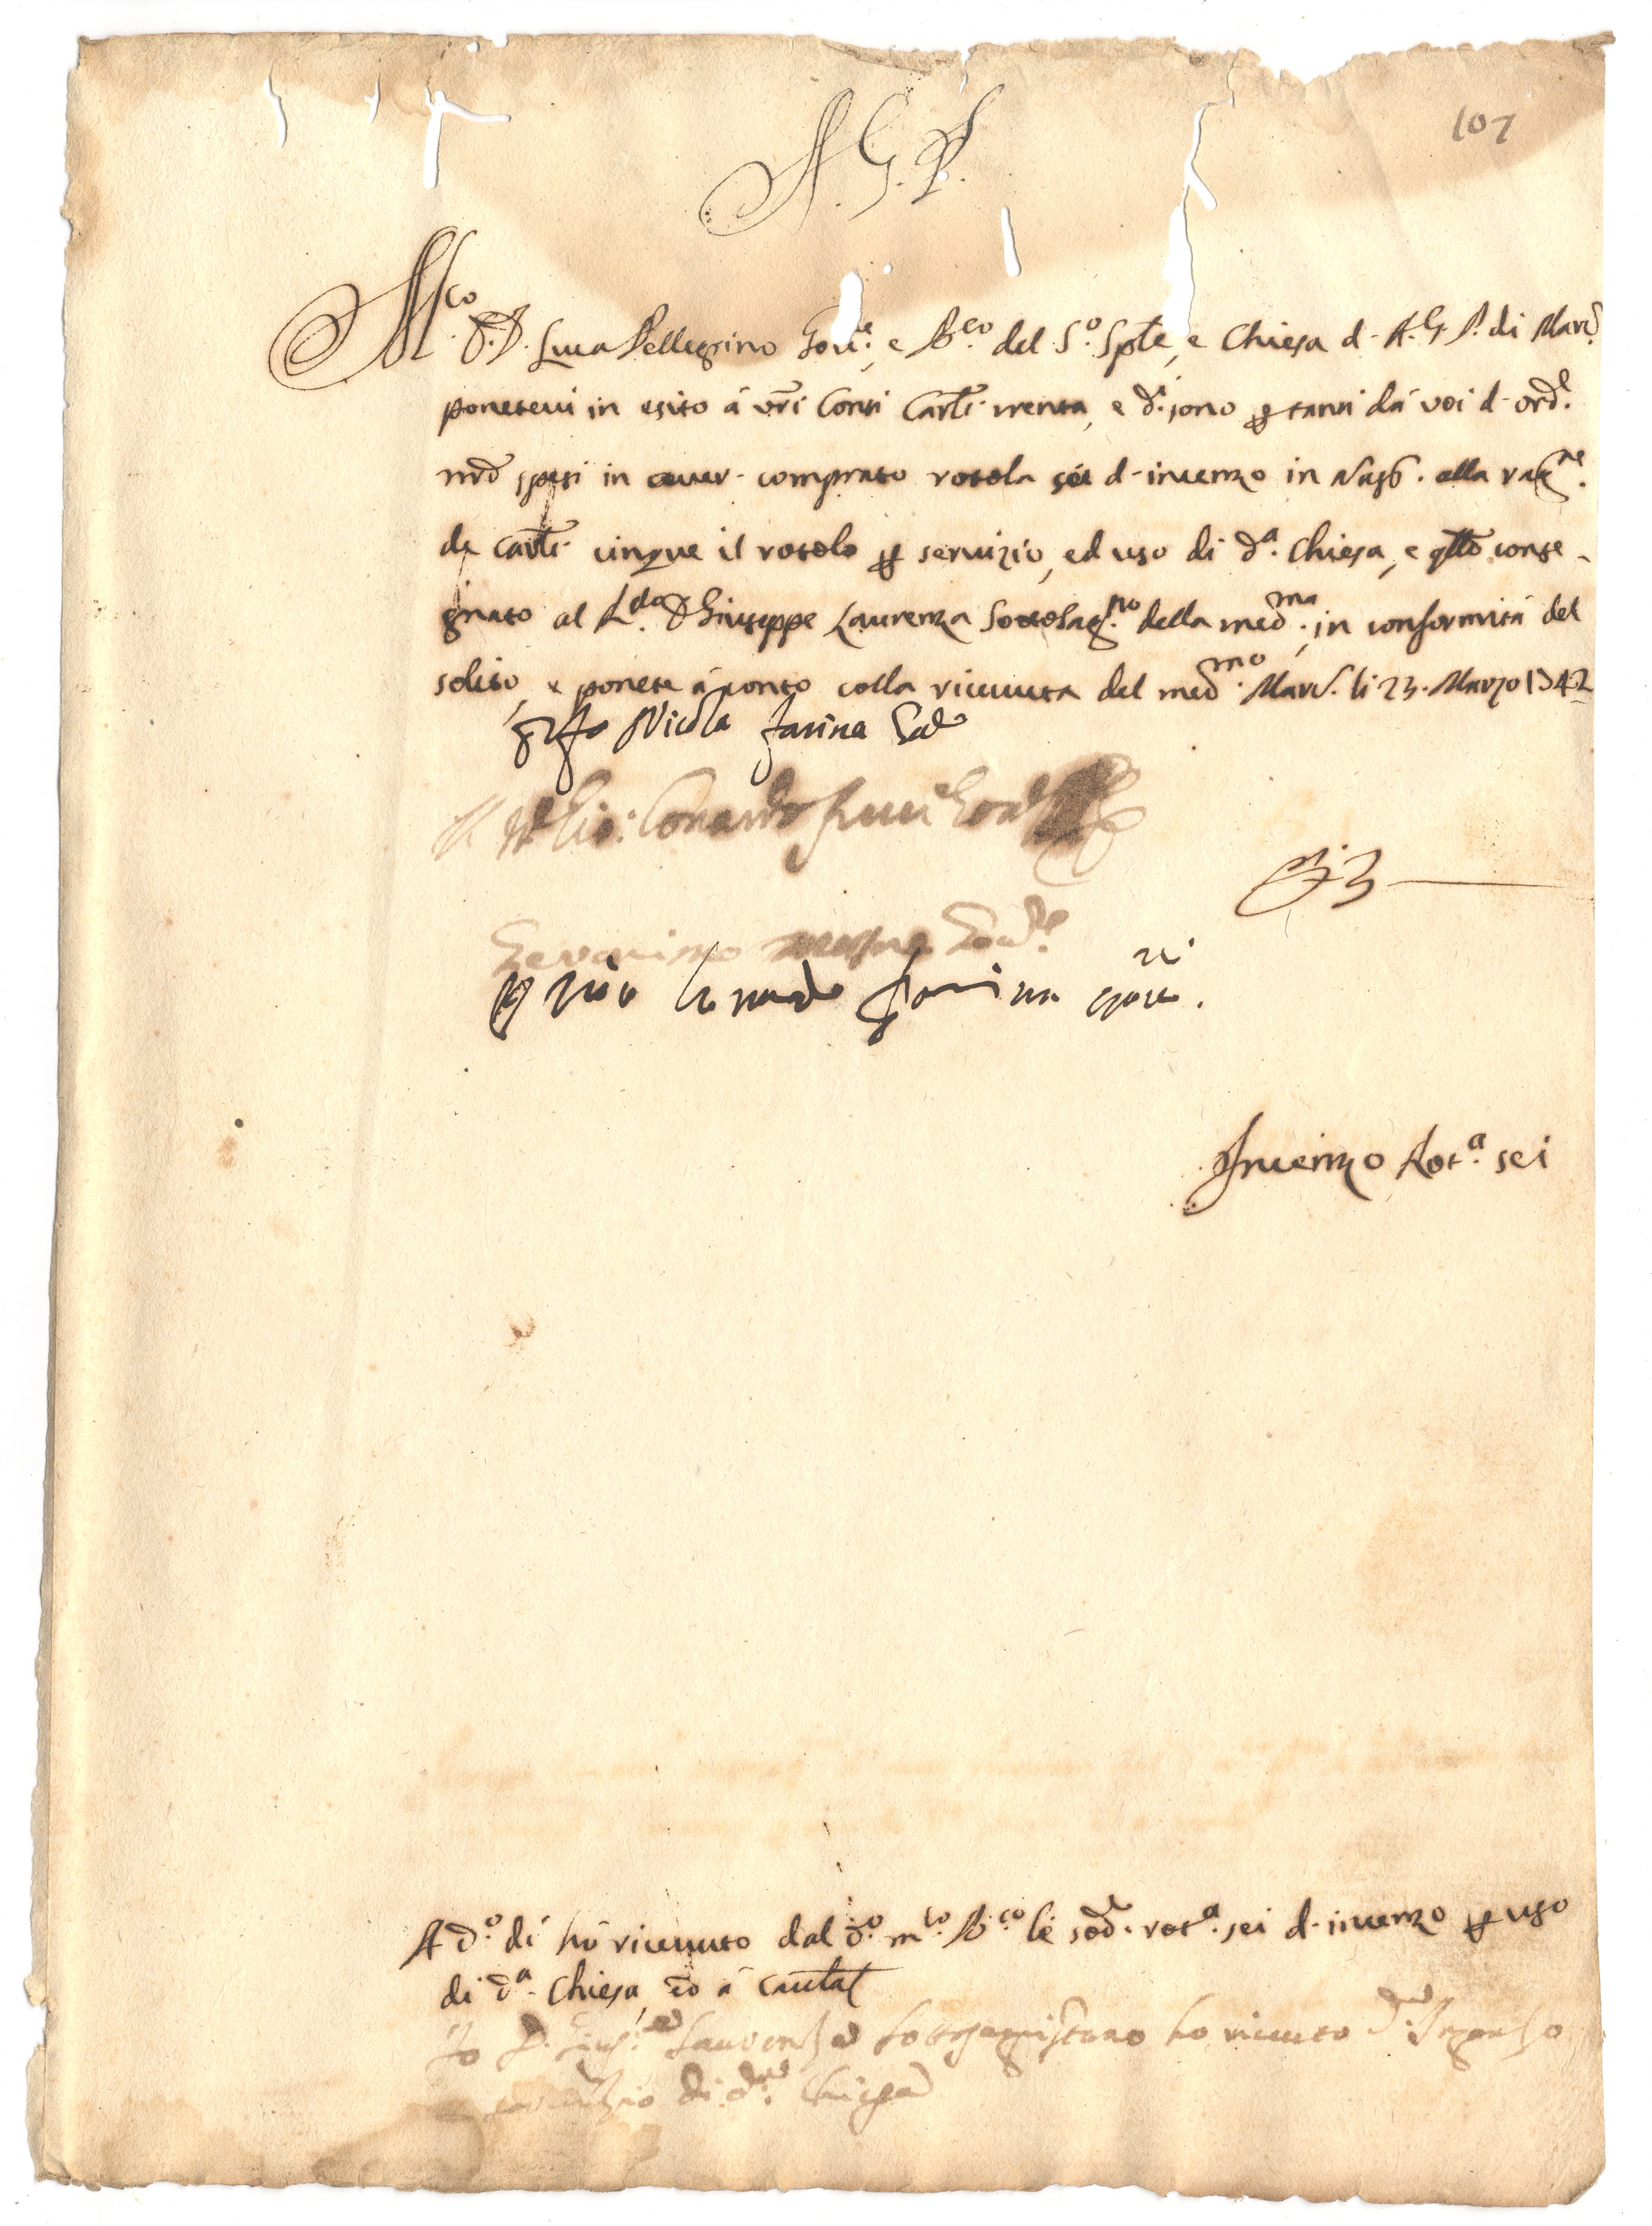 107
A. G. P.
M.co D. D. Luca Pellegrino Gov.e, e B.co del S.o Sple, e Chiesa d. A. G. P. di Mard.
ponetevi in esito á vri Conti Carli trenta, e d.i sono p tanti dá voi d. ord.e
nrõ spesi in aver comprato rotola sei d. incenzo in Nap. alla rag.ne
di Carli cinque il rotolo p servizio, ed uso di d.a Chiesa, e qllo conse-
gnato al R.do D. Giuseppe Laurenza Sottosag.no della med.ma, in conformitá del
solito, e ponete á conto colla ricevuta del med.mo Mard. li 23. Marzo 1742
Nicola Farina
Geronimo
Farina
3
Incenzo Rot.a sei
A d.o dí hó ricevuto dal d.o m.co B.co le sod.e rot.a sei d. incenzo p uso
di d.a Chiesa, et á caut.a
Io D. Gius.e Laurenza sottosagristano ho riceuto d. Inzenzo
servitzio di d.a Chiesa